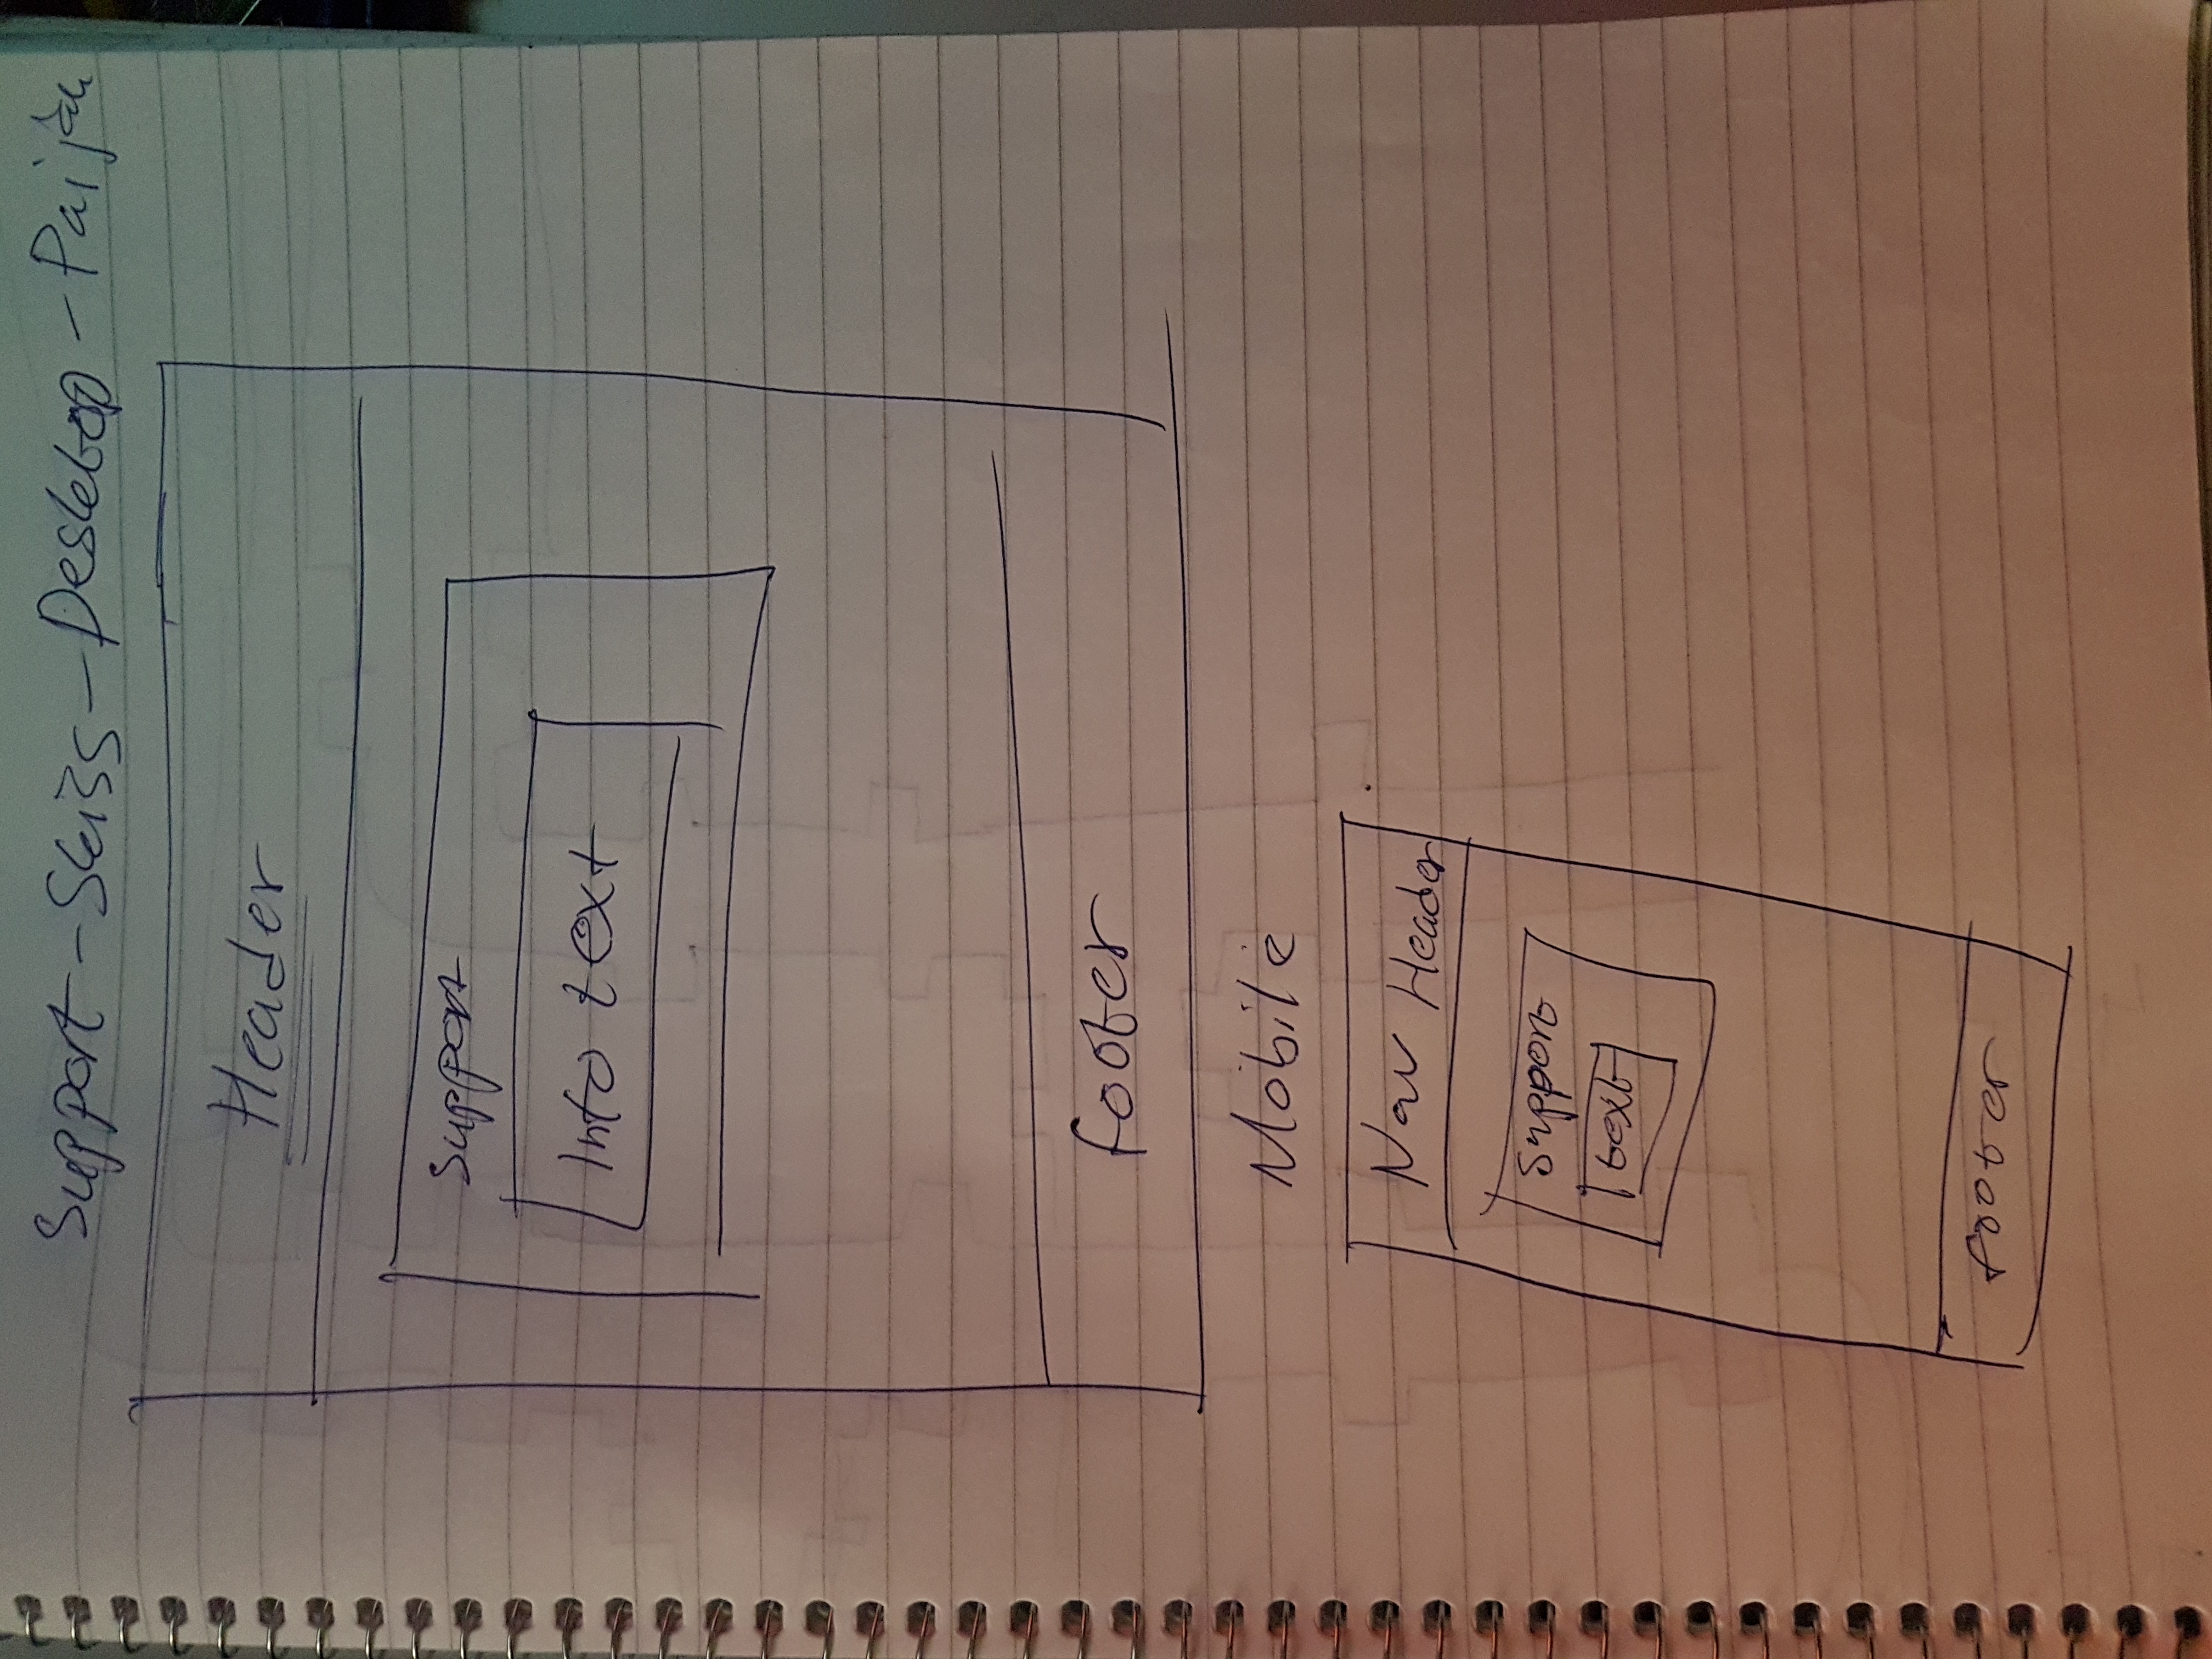 Support - Skiss - Desktop - Paijan
Header
Support
Info text
footer
Mobile
Nav Header
Support
text
footer